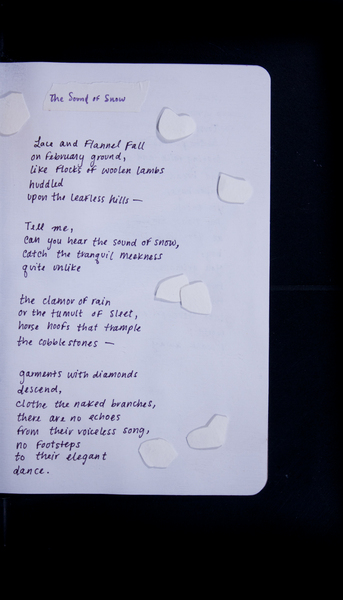 The Sound of Snow
Lace and Flannel Fall
on February ground,
like Flocks of woolen lambs
huddled
upon the leafless hills —
Tell me,
can you hear the sound of snow,
catch the tranquil meekness
quite unlike
the clamor of rain
or the tumult of Sleet,
horse hoofs that trample
the cobblestones —
garments with diamonds
descend,
clothe the naked branches,
there are no echoes
from their voiceless song,
no Footsteps
to their elegant
dance.